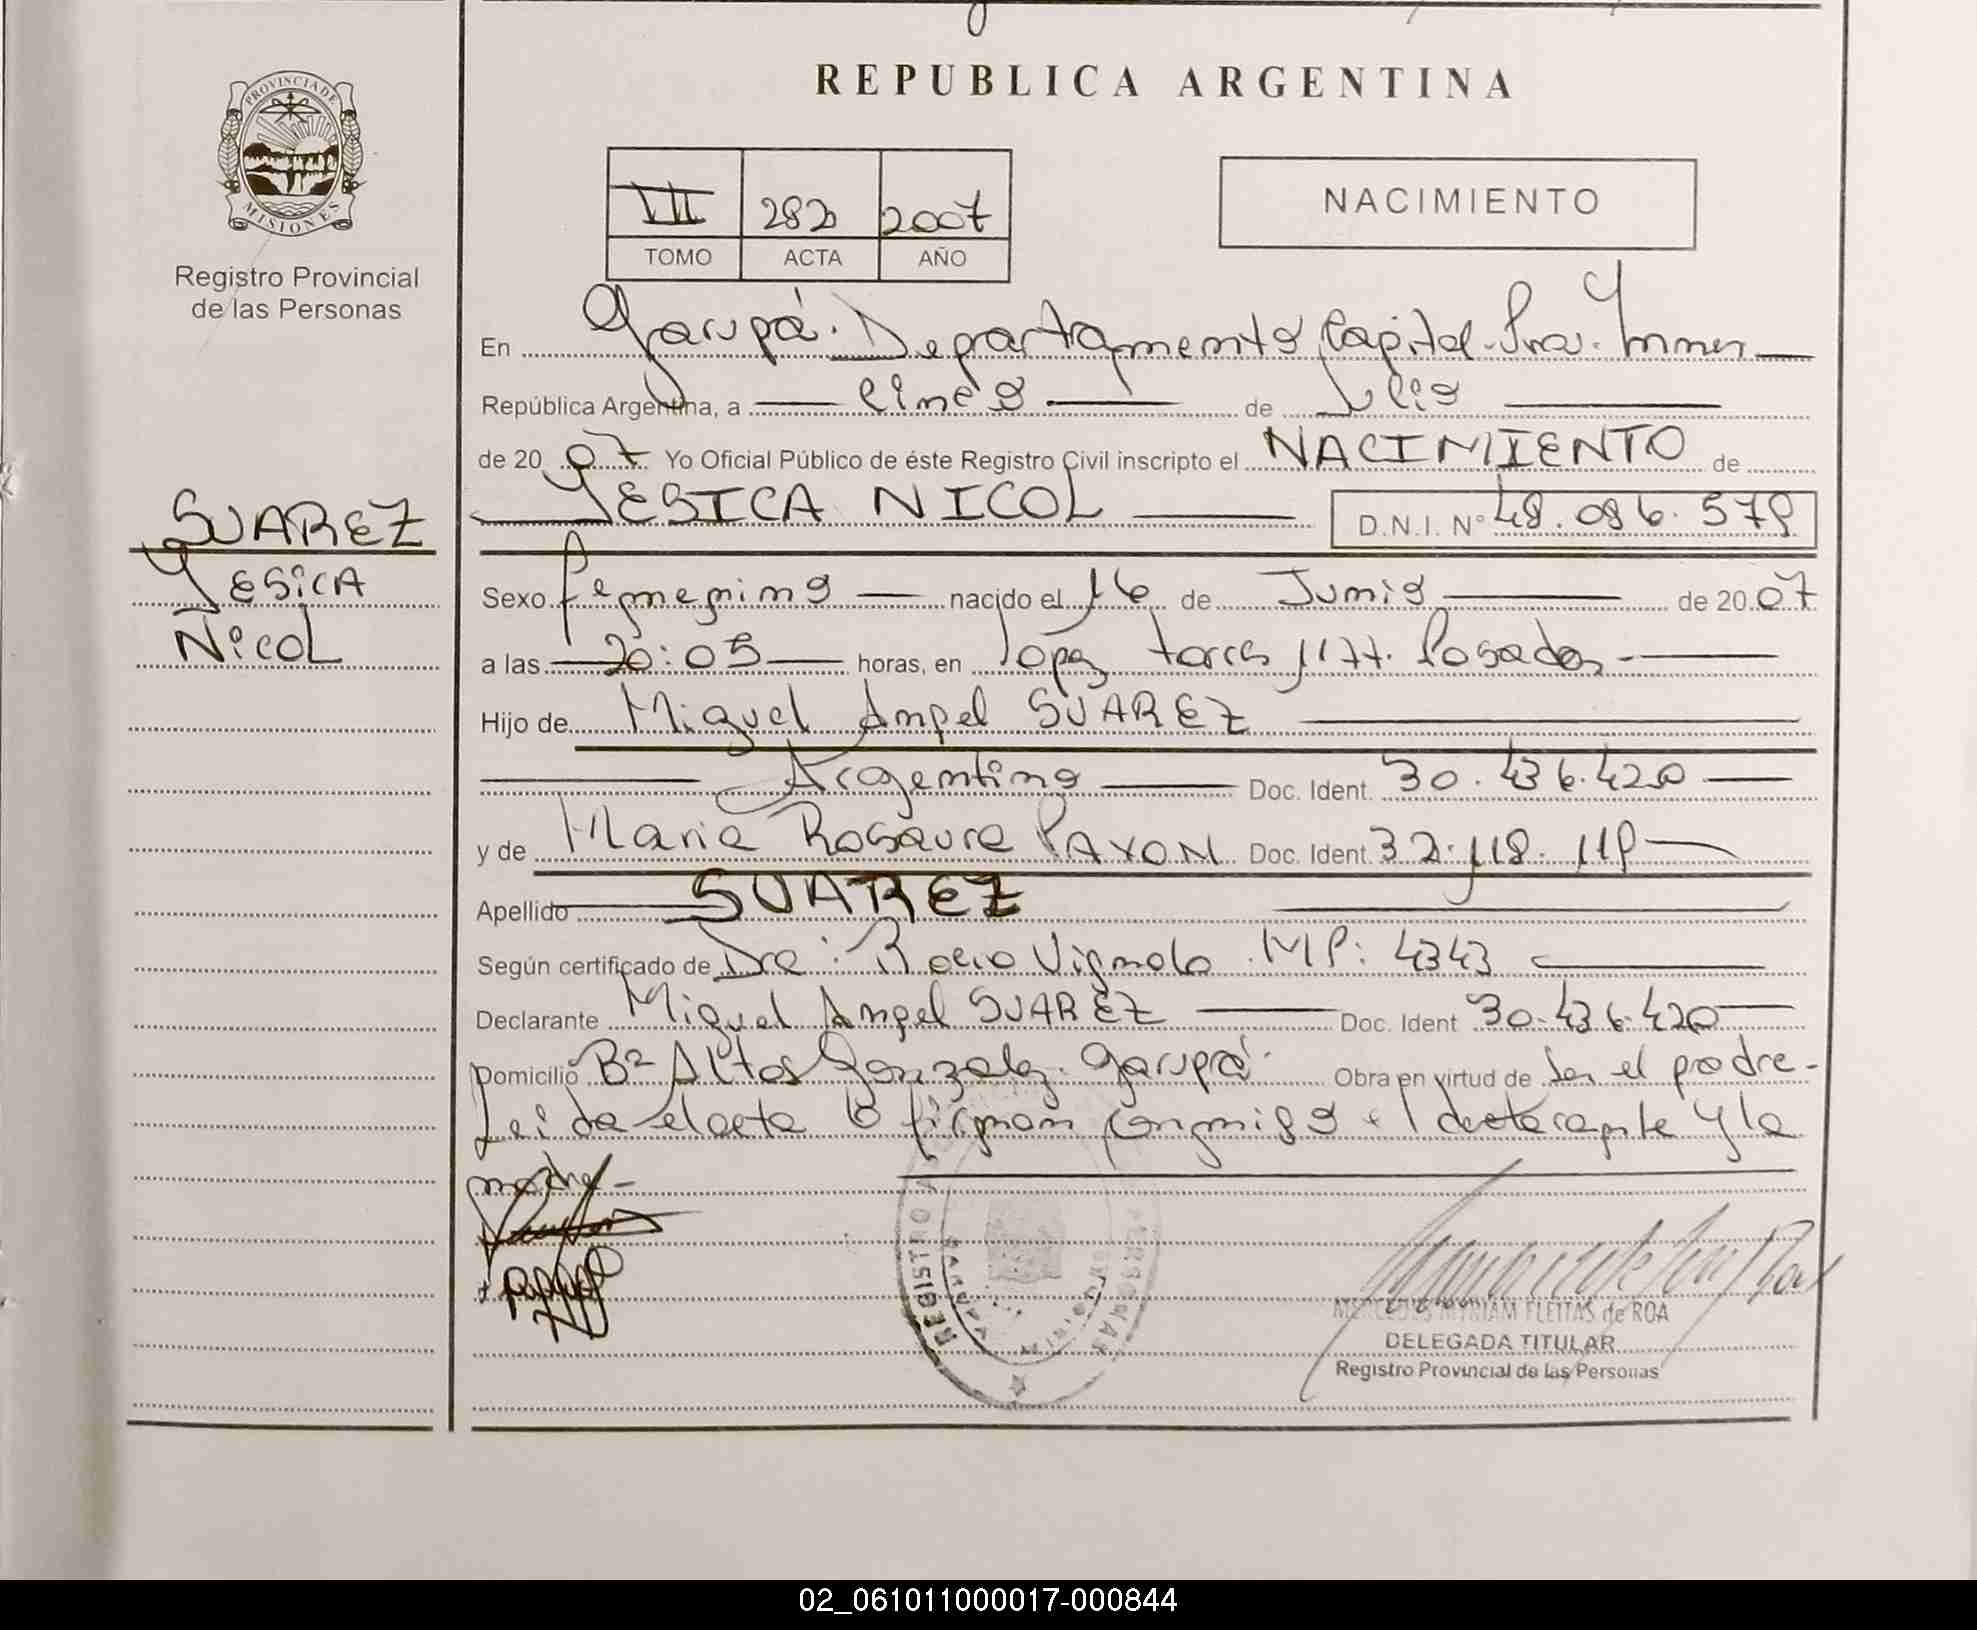 REPUBLICA ARGENTINA
PROVINCIA DE
MISIONES
Registro Provincial
de las Personas
III 282 2007
TOMO ACTA AÑO
NACIMIENTO
En Garupá. Departamento Capital. Pcia.
República Argentina, a cinco de Julio
de 20 07 Yo Oficial Público de éste Registro Civil inscripto el NACIMIENTO de
YESICA NICOL D.N.I. Nº 48.086.579
SUAREZ
YESICA
NICOL
Sexo femenino nacido el 16 de Junio de 20 07
a las 20:05 horas, en lopez torres 1177. Posadas
Hijo de Miguel Angel SUAREZ
Argentino Doc. Ident. 30.436.420
y de Maria Rosaura PAYON Doc. Ident. 32.118.119
Apellido SUAREZ
Según certificado de Dra: Rocio Vignolo MP: 4343
Declarante Miguel Angel SUAREZ Doc. Ident 30.436.420
Domicilio Bº Altos Gonzalez. Garupá. Obra en virtud de ser el padre.
Leida el acta la firman conmigo el declarante y la
madre
REGISTRO
PERSONAS
GARUPA
MERCEDES MYRIAM FLEITAS de ROA
DELEGADA TITULAR
Registro Provincial de las Personas
02_061011000017-000844